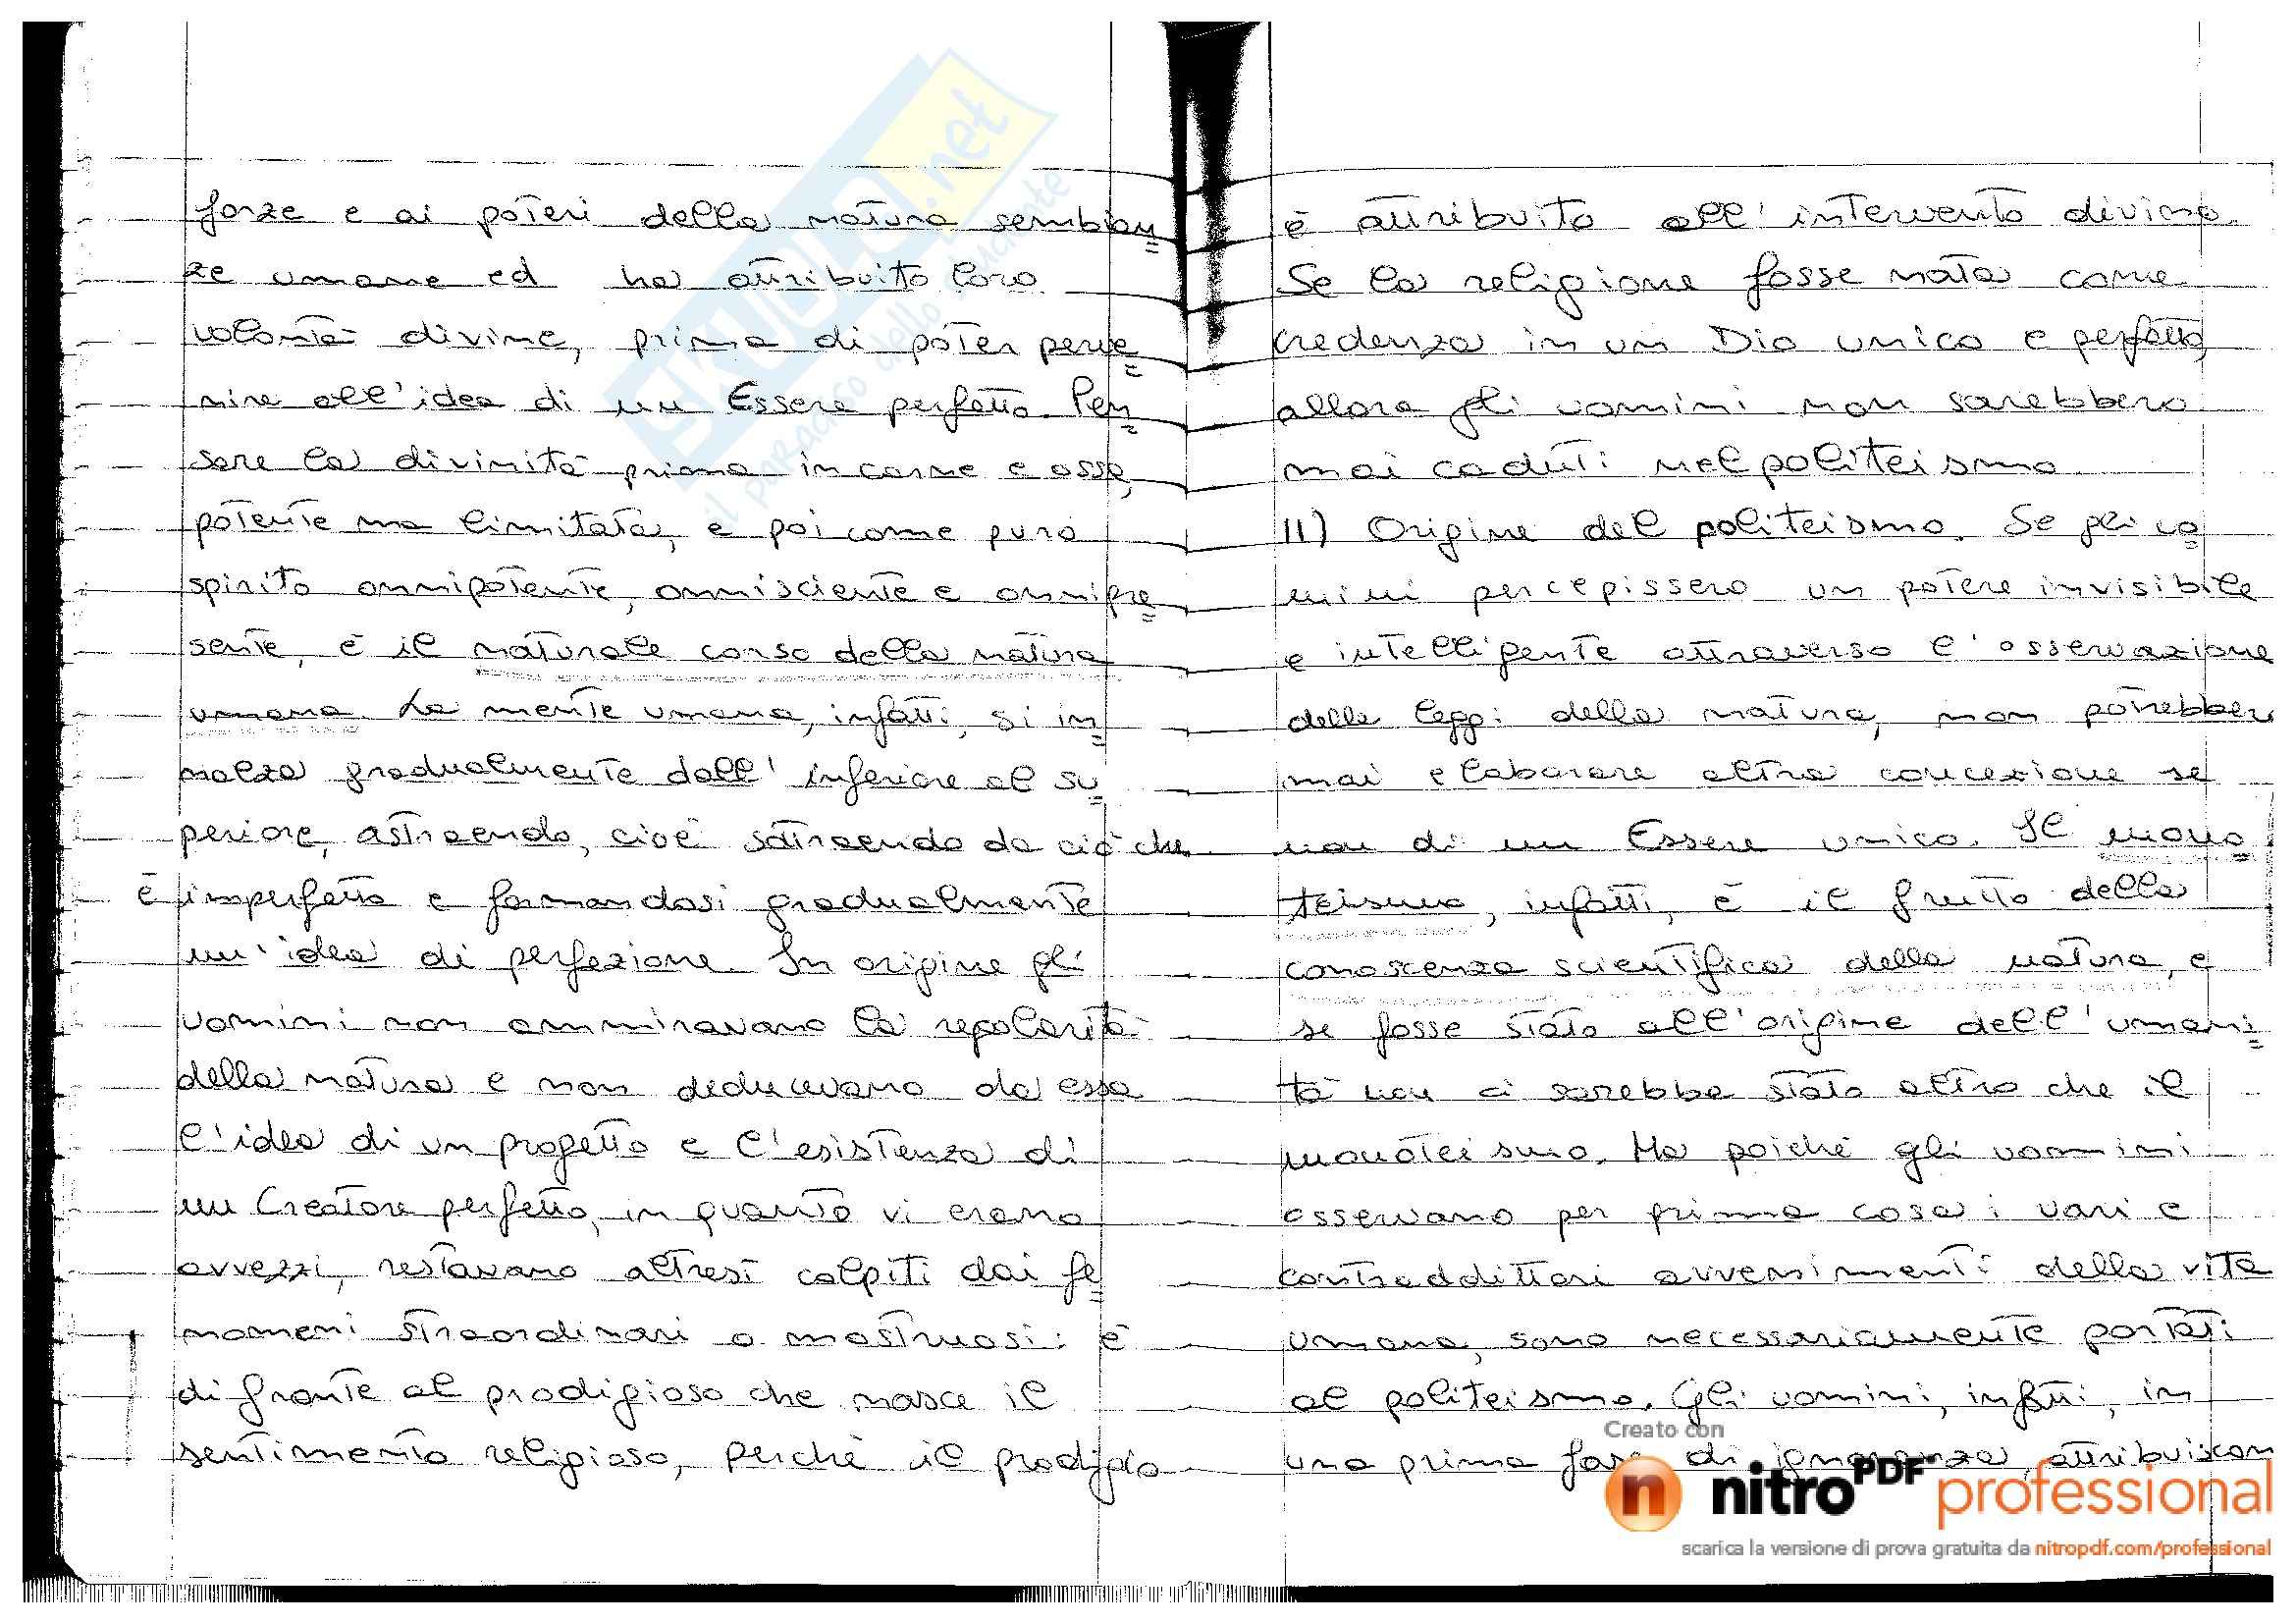 forze e ai poteri della natura sembian=
ze umane ed ha attribuito loro
volontà divine, prima di poter perve=
nire all'idea di un Essere perfetto. Pen=
sare la divinità prima in carne e ossa,
potente ma limitata, e poi come puro
spirito onnipotente, onnisciente e onnipre=
sente, è il naturale corso della natura
umana. La mente umana, infatti, si in=
nalza gradualmente dall'inferiore al su=
periore, astraendo, cioè sottraendo da ciò che
è imperfetto e formandosi gradualmente
un'idea di perfezione. In origine gli
uomini non ammiravano la regolarità
della natura e non deducevano da essa
l'idea di un progetto e l'esistenza di
un Creatore perfetto, in quanto vi erano
avvezzi, restavano altresì colpiti dai fe=
nomeni straordinari o mostruosi: è
di fronte al prodigioso che nasce il
sentimento religioso, perché il prodigio
è attribuito all'intervento divino.
Se la religione fosse nata come
credenza in un Dio unico e perfetto,
allora gli uomini non sarebbero
mai caduti nel politeismo.
II) Origine del politeismo. Se gli uo=
mini percepissero un potere invisibile
e intelligente attraverso l'osservazione
delle leggi della natura, non potrebbero
mai elaborare altra concezione se
non di un Essere unico. Il mono=
teismo, infatti, è il frutto della
conoscenza scientifica della natura, e
se fosse stato all'origine dell'umani=
tà non ci sarebbe stato altro che il
monoteismo. Ma poiché gli uomini
osservano per prima cosa i vari e
contraddittori avvenimenti della vita
umana, sono necessariamente portati
al politeismo. Gli uomini, infatti, in
una prima fase di ignoranza, attribuiscon
SKUOLA.net
il paradiso dello studente
Creato con
nitroPDF professional
scarica la versione di prova gratuita da nitropdf.com/professional